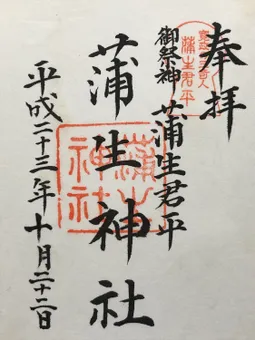 奉拝
寛政三奇人
蒲生君平
御祭神 蒲生君平
蒲生神社
蒲生神社
平成二十三年十月二十二日